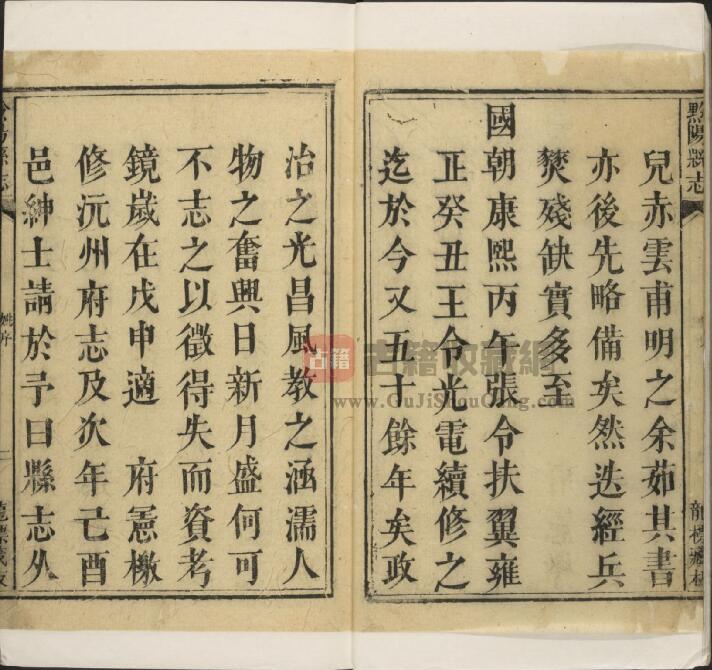 黔陽縣志
兒赤雲甫明之余茹其書
亦後先略備矣然迭經兵
燹殘缺實多至
國朝康熙丙午張令扶翼雍
正癸丑王令光電續修之
迄於今又五十餘年矣政
龍標藏板
治之光昌風教之涵濡人
物之奮興日新月盛何可
不志之以徵得失而資考
鏡歲在戊申適 府憲檄
修沅州府志及次年己酉
邑紳士請於予曰縣志久
姚序
古籍
古籍收藏網
www.GuJiShouCang.com